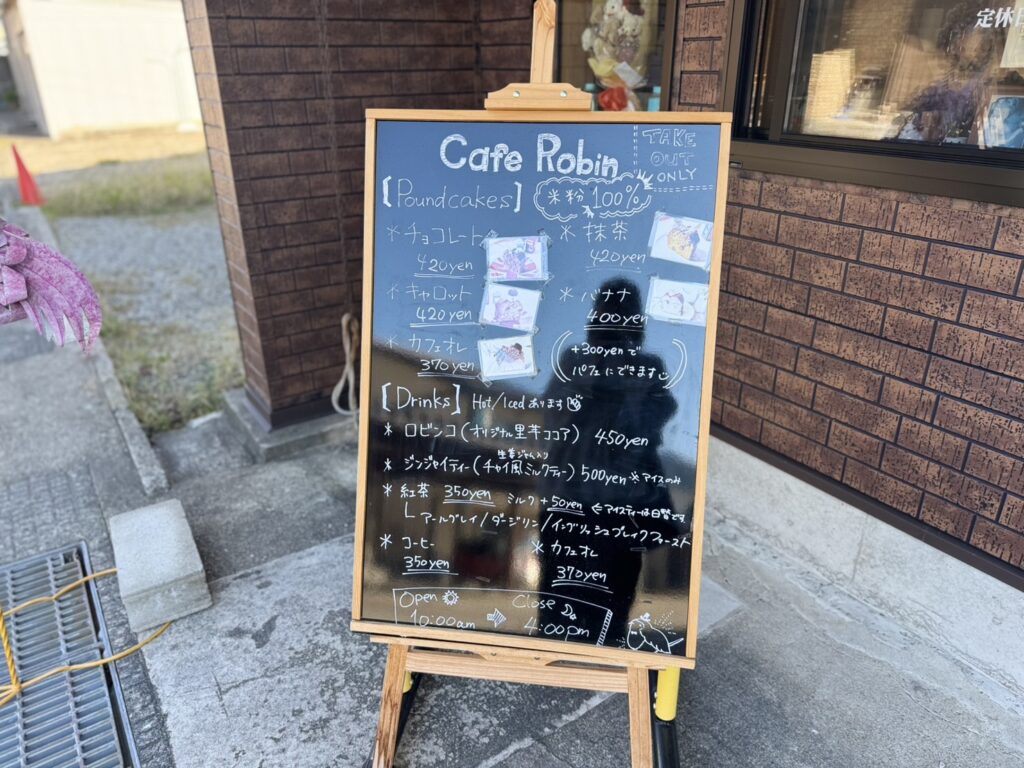 定休日
Cafe Robin
TAKE
OUT
ONLY
[Poundcakes]
米粉 100%
* チョコレート
420yen
* 抹茶
420yen
* キャロット
420yen
* バナナ
400yen
* カフェオレ
370yen
(+300yenで
パフェにできます)
[Drinks] Hot/Iced あります
* ロビンコ(オリジナル里芋ココア) 450yen
生姜ジャム入り
* ジンジャイティー(チャイ風ミルクティー) 500yen ※アイスのみ
* 紅茶 350yen ミルク+50yen ←アイスティーは日替です
└ アールグレイ/ダージリン/イングリッシュブレイクファースト
* コーヒー
350yen
* カフェオレ
370yen
Open
10:00am
⇨
Close
4:00pm